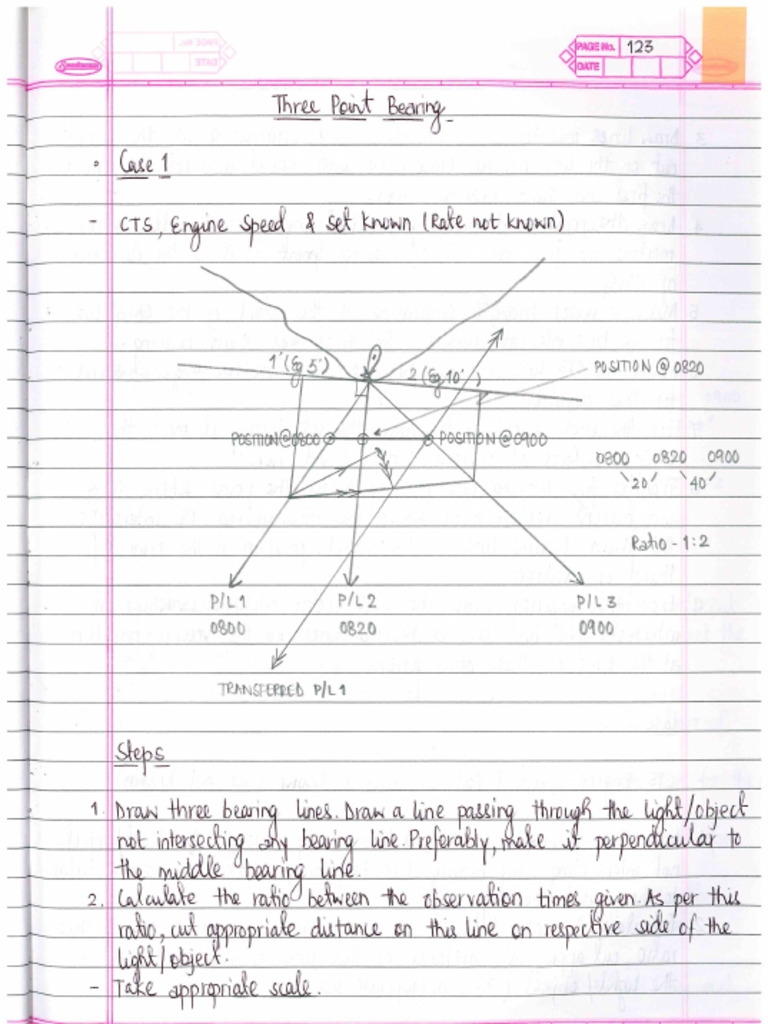 PAGE No. 123
DATE
Three Point Bearing
Case 1
- CTS, Engine Speed & set known (Rate not known)
1' (Eg 5')
2 (Eg 10')
POSITION @ 0820
POSITION @ 0800
POSITION @ 0900
0800 0820 0900
20' 40'
Ratio - 1:2
P/L 1 P/L 2 P/L 3
0800 0820 0900
TRANSFERRED P/L 1
Steps
1. Draw three bearing lines. Draw a line passing through the light/object
not intersecting any bearing line. Preferably, make it perpendicular to
the middle bearing line.
2. Calculate the ratio between the observation times given. As per this
ratio, cut appropriate distance on this line on respective side of the
light/object.
- Take appropriate scale.